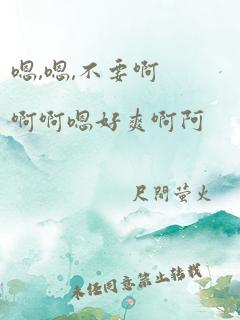 嗯,嗯,不要啊
啊啊嗯好爽啊阿
尺間萤火
未经同意禁止转载